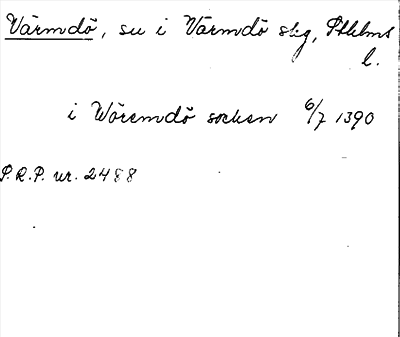 Värmdö, su i Värmdö skg, Sthlms
l.
i Wöremdö socken 6/7 1390
P.R.P. nr. 2488